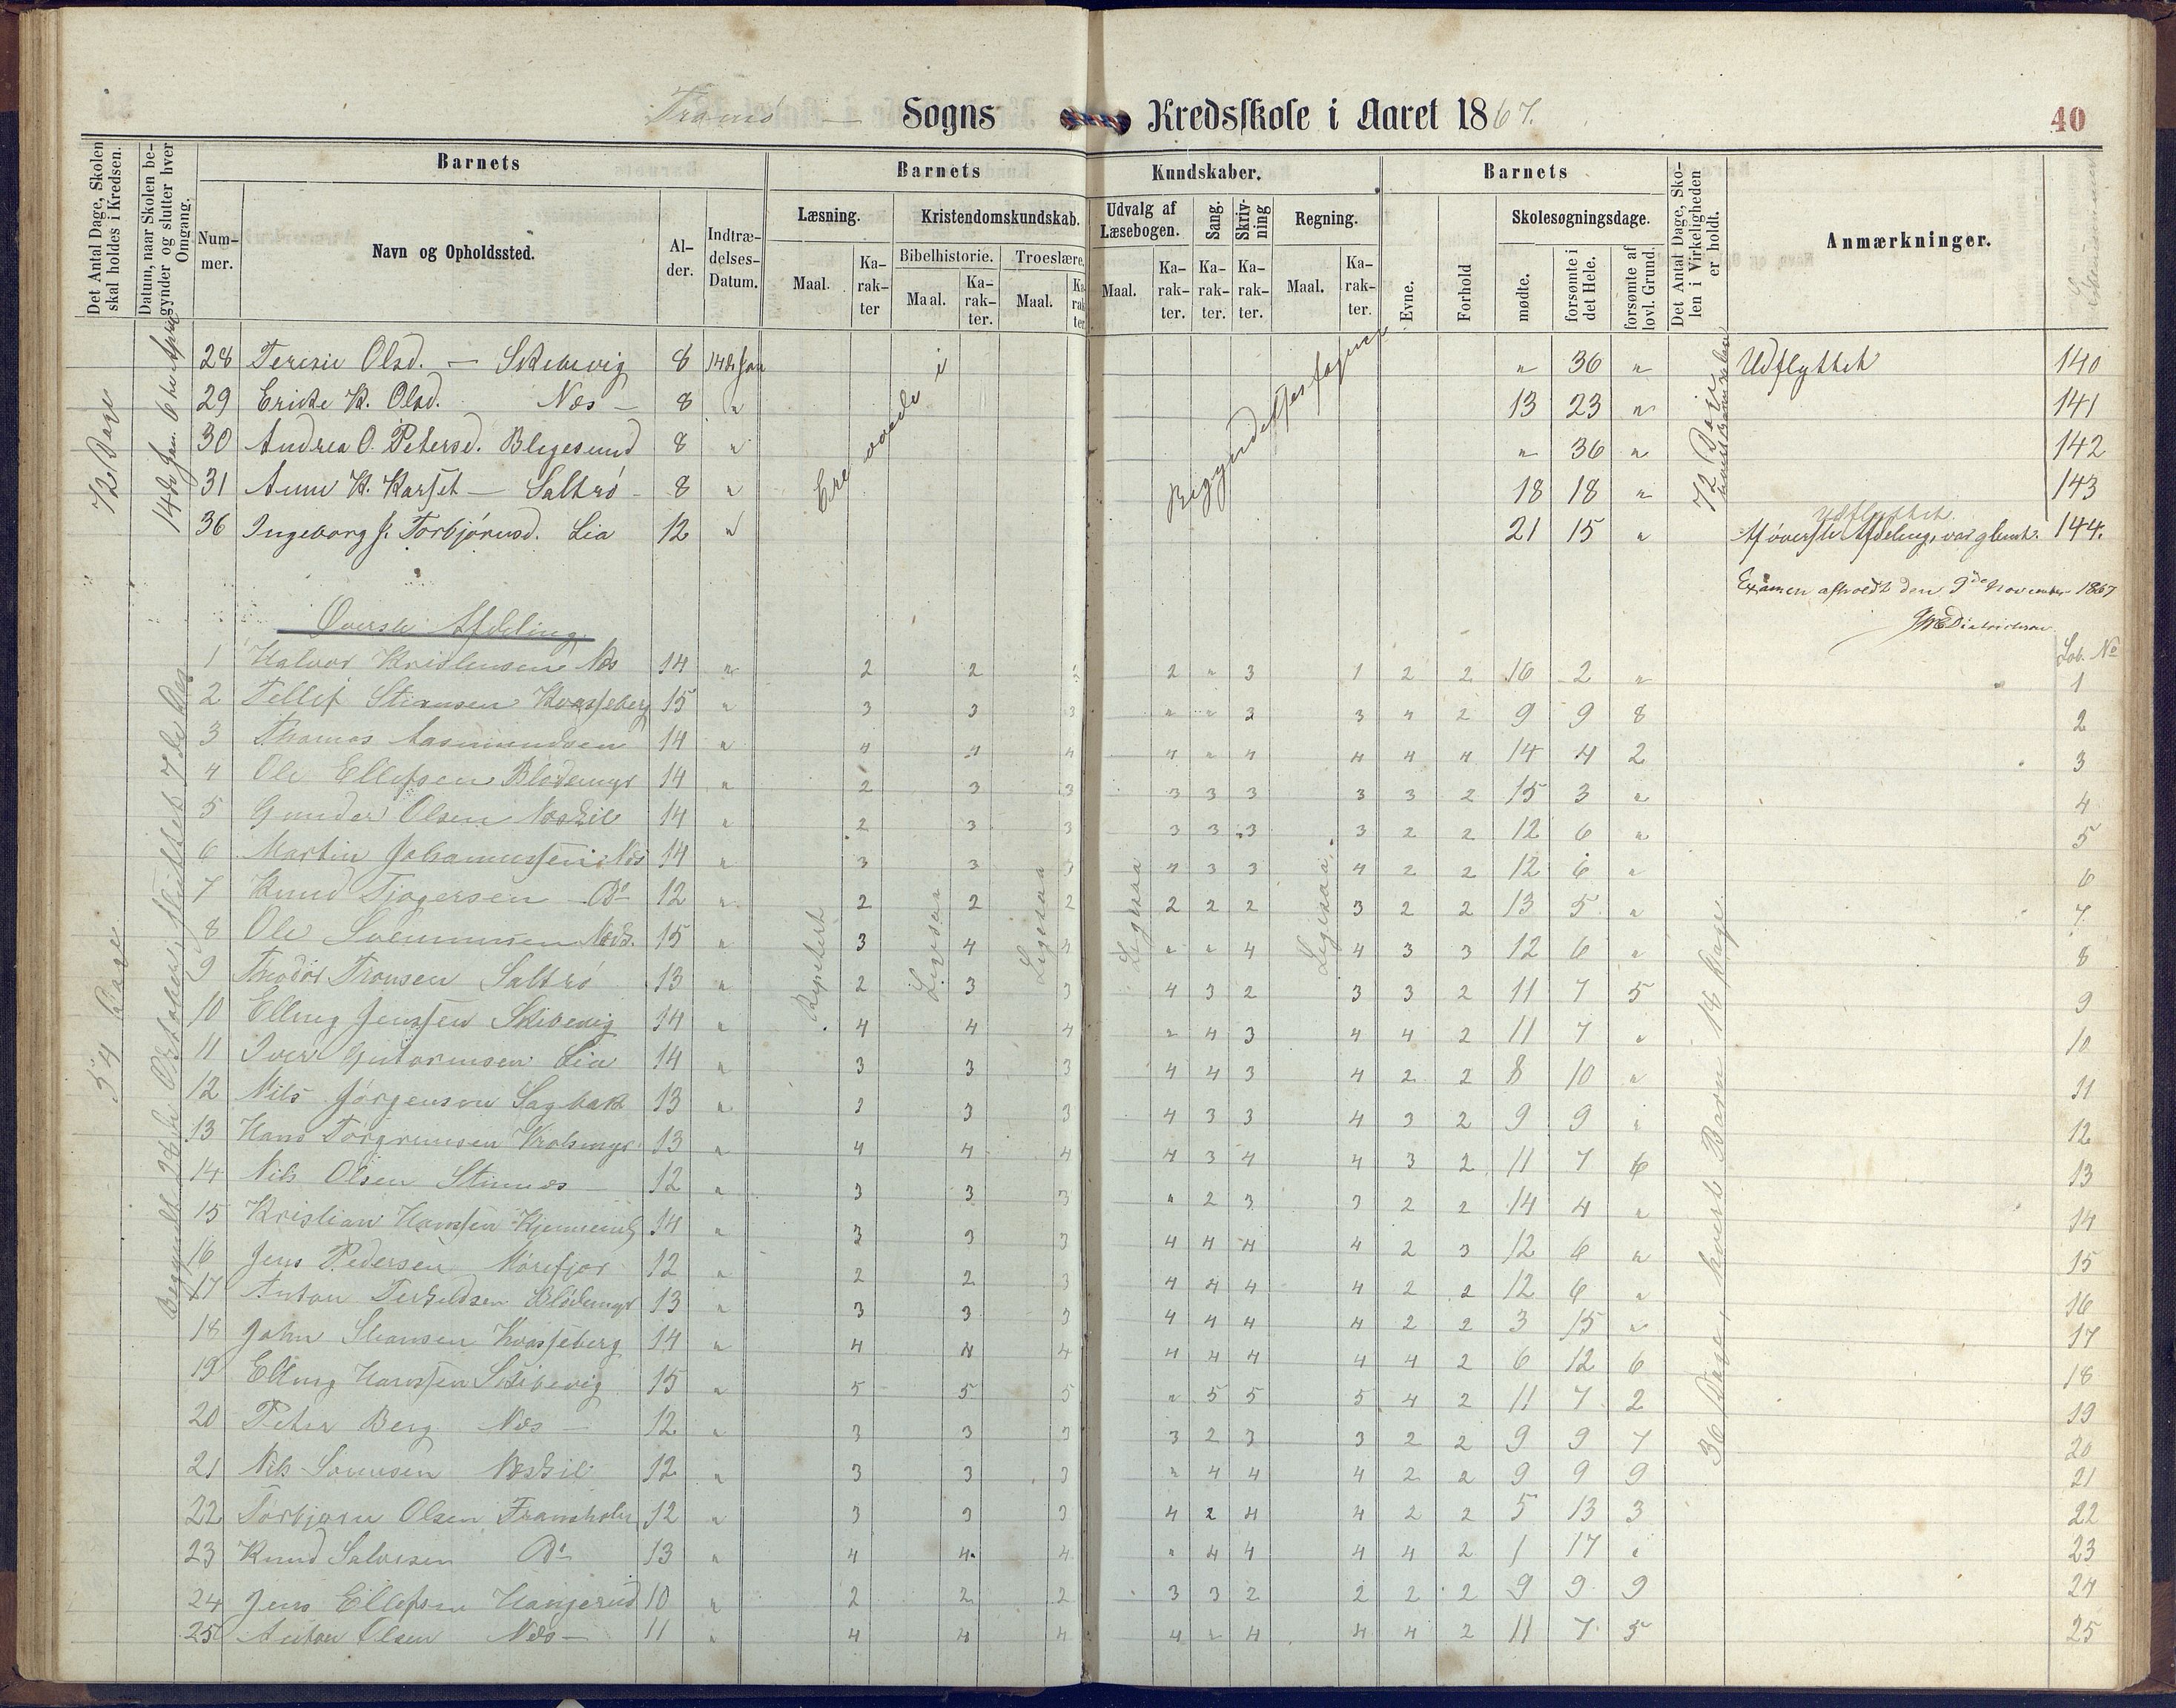 Tromö — Sogns Kredsskole i Aaret 1867. 40
Det Antal Dage, Skolen skal holdes i Kredsen.
Datum, naar Skolen begynder og slutter hver Omgang.
Barnets
Nummer. Navn og Opholdssted. Alder. Indtrædelses-Datum.
Barnets Kundskaber.
Læsning. Maal. Karakter
Kristendomskundskab.
Bibelhistorie. Maal. Karakter.
Troeslære. Maal. Karakter
Udvalg af Læsebogen. Maal. Karakter.
Sang. Karakter.
Skrivning Karakter.
Regning. Maal. Karakter.
Barnets
Evne. Forhold
Skolesøgningsdage.
mødte. forsømte i det Hele. forsømte af lovl. Grund.
Det Antal Dage, Skolen i Virkeligheden er holdt.
Anmærkninger.
72 Dage
14de Jan. 6te April
Ere øvede i
Begyndelsesfagene
28 Teresie Olsd. — Skibevig 8 14de Jan „ 36 „ Udflyttet 140
29 Ericke K. Olsd. Næs — 8 „ 13 23 „ 141
30 Andrea O. Petersd. Blegesund 8 „ „ 36 „ 142
31 Anne K. Karset — Saltrö — 8 „ 18 18 „ 143
Udflyttet
36 Ingeborg J. Torbjörnsd. Lia 12 „ 21 15 „ Af överste Afdeling, var glemt. 144.
Examen afholdt den 9de November 1867
Överste Afdeling
Löb. No
54 Dage
Begyndt 28de Oktober, sluttet 7de Dec
Repetert
Ligesaa
Ligesaa
Ligesaa
Ligesaa
36 Dage, hvert Barn 18 Dage
1 Halvor Kristensen Næs 14 „ 2 2 2 2 „ 3 1 2 2 16 2 „ 1
2 Tellef Stiansen Kvasseberg 15 „ 3 3 3 „ „ 3 3 4 2 9 9 8 2
3 Thomas Aasmundsen 14 „ 4 4 4 4 „ 4 4 4 4 14 4 2 3
4 Ole Ellefsen Blödemyr 14 „ 2 3 3 3 3 3 3 3 2 15 3 „ 4
5 Gunder Olsen Næskil 14 „ 2 3 3 3 3 3 3 2 2 12 6 „ 5
6 Martin Johannessen Næs 14 „ 3 3 3 4 3 3 4 2 2 12 6 „ 6
7 Knud Tjøgersen Do 12 „ 2 2 2 2 2 2 3 2 2 13 5 „ 7
8 Ole Svenumsen Næsk. 15 „ 3 4 4 „ „ 4 4 3 3 12 6 „ 8
9 Theodor Tronsen Saltrö 13 „ 2 3 3 4 3 2 3 3 2 11 7 5 9
10 Elling Jenssen Skibevig 14 „ 4 4 4 „ 4 3 4 4 2 11 7 „ 10
11 Iver Gutormsen Lia 14 „ 3 3 3 4 4 3 4 2 2 8 10 „ 11
12 Nils Jörgenson Sagbak 13 „ 2 3 3 4 3 3 4 3 2 9 9 „ 12
13 Hans Torgrimsen Vrolsmyr 13 „ 4 4 4 4 3 4 4 3 2 11 7 6 13
14 Nils Olsen Stinnes — 12 „ 3 3 3 „ 2 3 3 2 2 14 4 „ 14
15 Kristian Hanssen 14 „ 3 3 3 4 4 4 4 2 3 12 6 „ 15
16 Jens Pedersen Mörefjær 12 „ 2 2 3 4 4 4 4 2 2 12 6 „ 16
17 Anton Terkeldsen Blödemyr 13 „ 3 3 3 4 4 4 4 2 2 3 15 „ 17
18 John Stiansen Kvasseberg 14 „ 4 4 4 4 4 4 4 4 2 6 12 6 18
19 Elling Hanssen Skibevig 15 „ 5 5 5 „ 5 5 5 4 2 11 7 2 19
20 Peter Berg Næs — 12 „ 3 3 3 3 2 3 3 2 2 9 9 7 20
21 Nils Sörensen Næskil 12 „ 3 3 3 „ 4 4 4 2 2 9 9 9 21
22 Torbjørn Olsen Framholm 12 „ 3 3 3 4 2 4 4 2 2 5 13 3 22
23 Knud Salvesen Do 13 „ 4 4 4 „ 4 4 4 4 2 1 17 „ 23
24 Jens Ellefsen Hangerud 10 „ 2 2 2 3 3 2 2 2 2 9 9 9 24
25 Anton Olsen Næs — 11 „ 4 4 4 4 „ 4 4 4 2 11 7 5 25